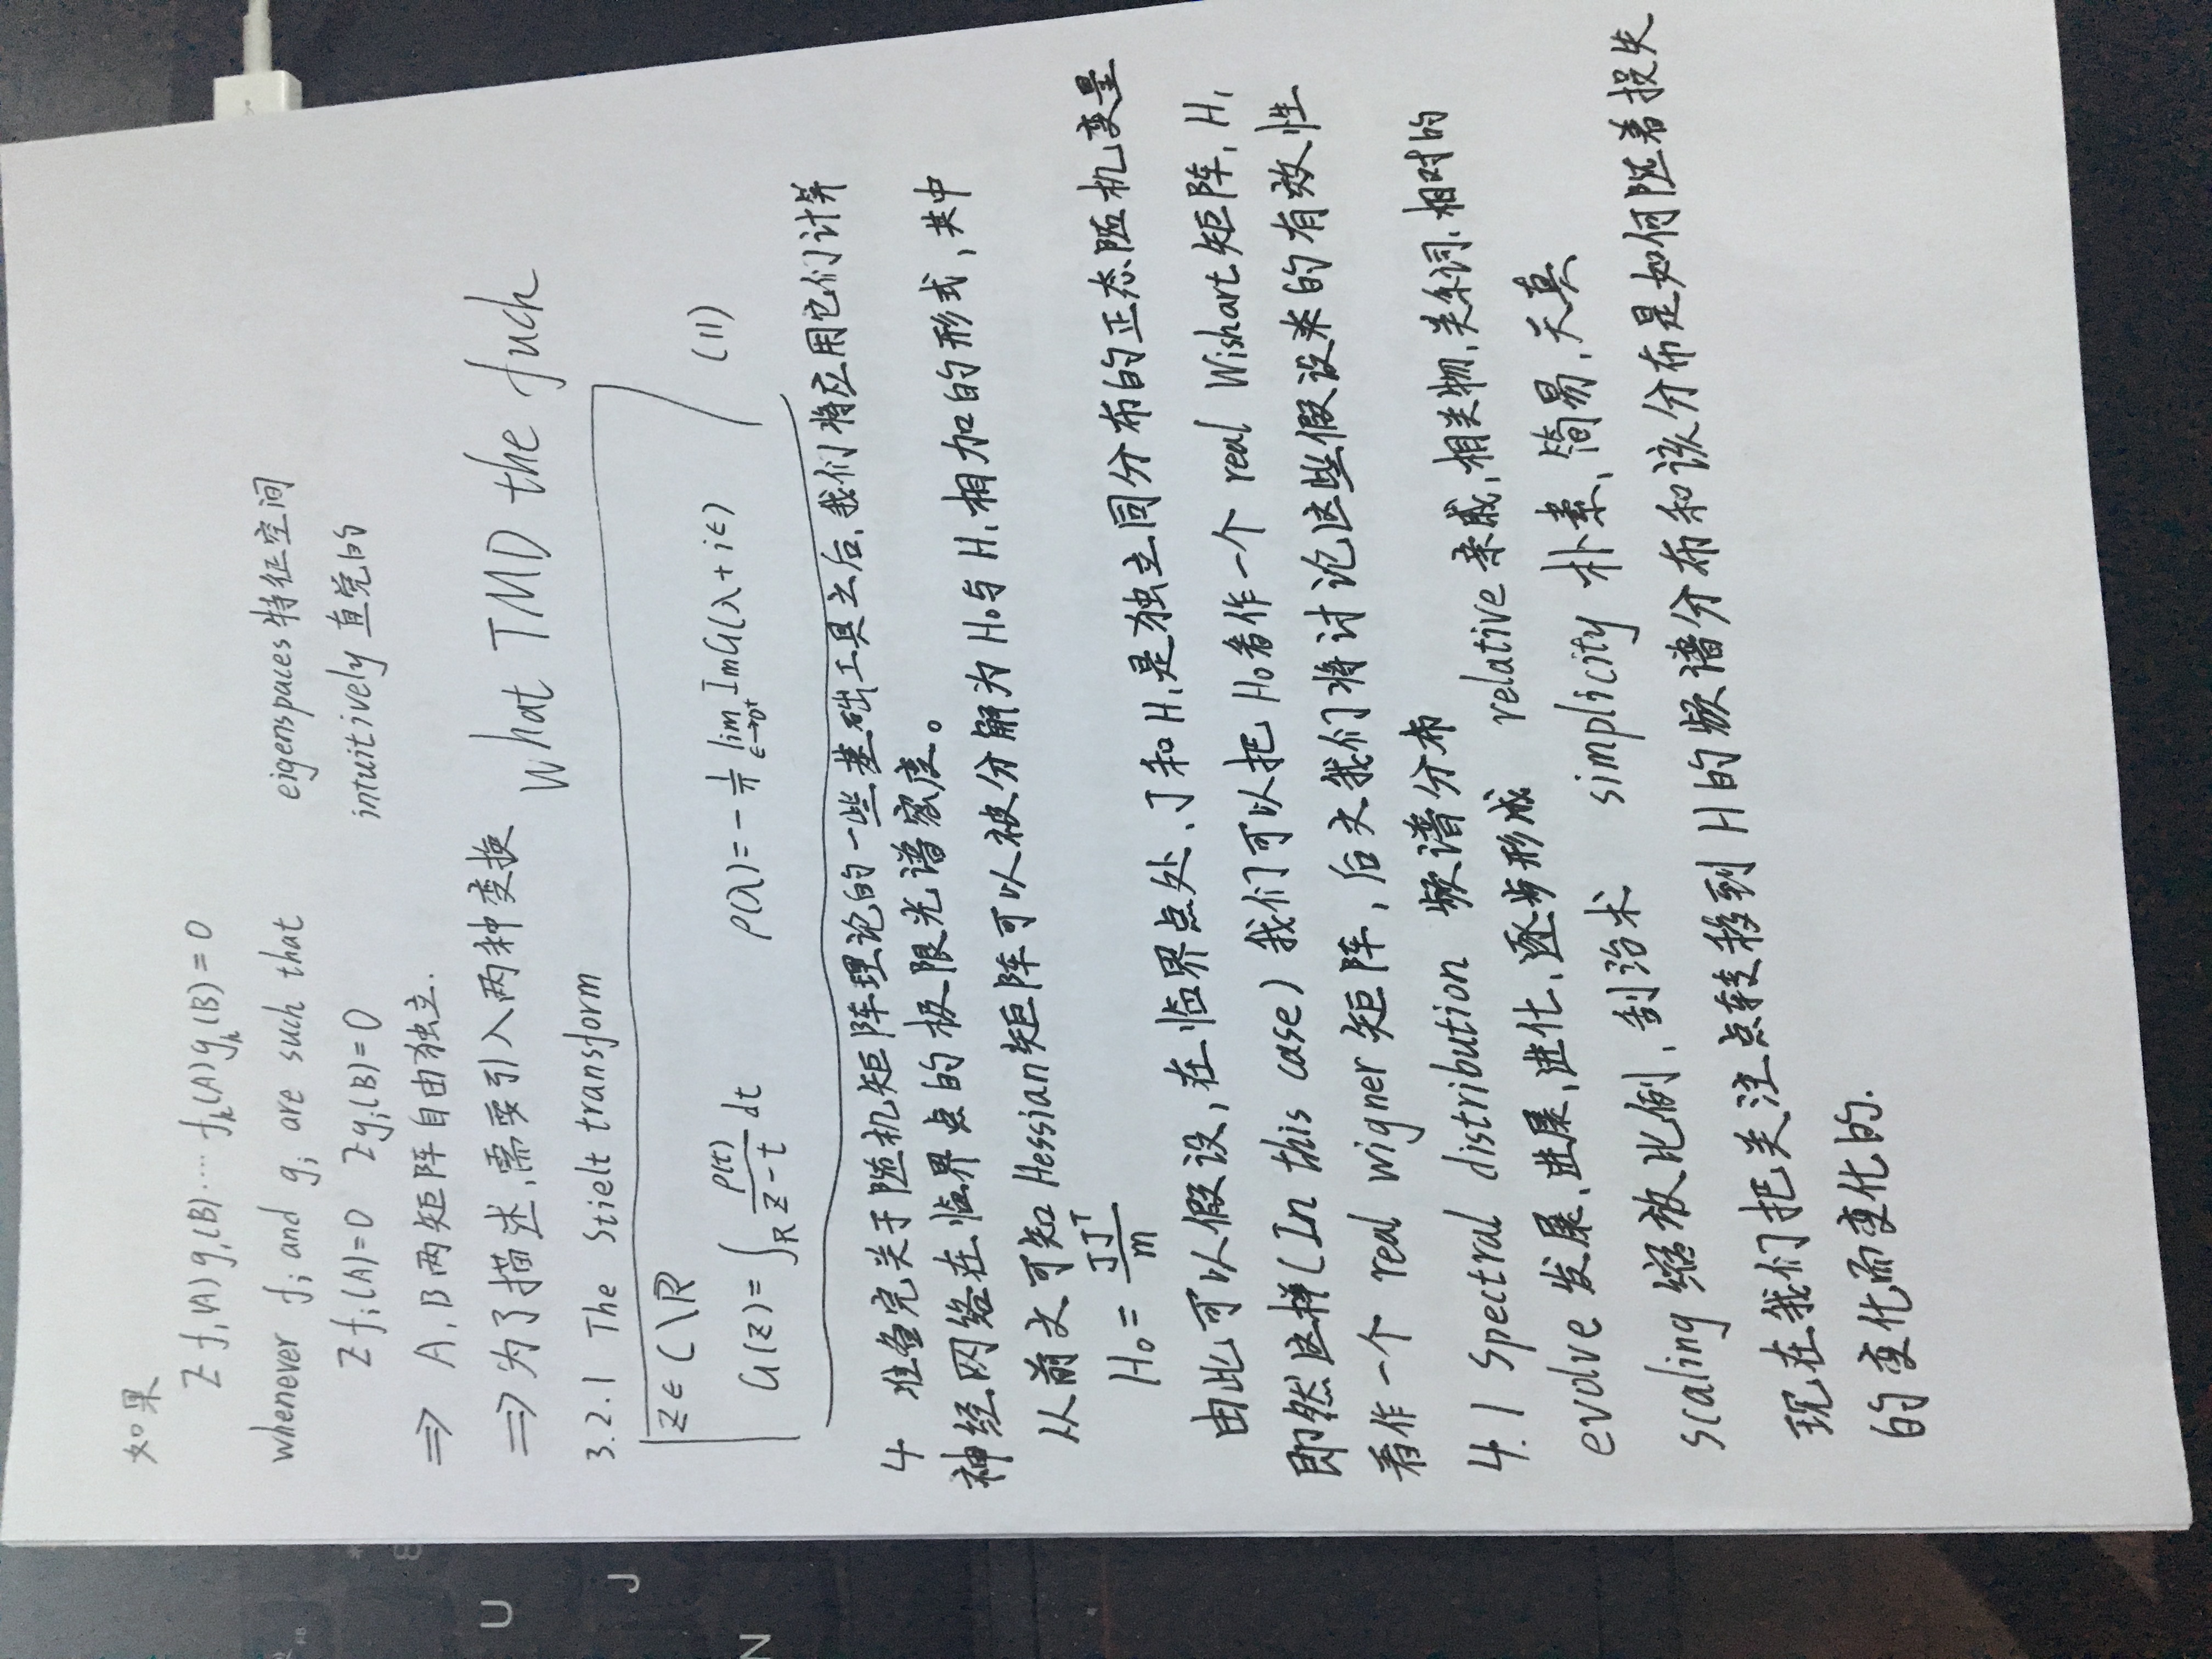 如果
Z f₁(A) g₁(B) ···· fₖ(A) gₖ(B) = 0
whenever fᵢ and gᵢ are such that eigenspaces 特征空间
Z fᵢ(A)=0 Z gᵢ(B)=0 intuitively 直觉的
⇒ A,B两矩阵自由独立.
⇒ 为了描述,需要引入两种变换 what TMD the fuck
3.2.1 The Stielt transform
Z ∈ C\R
G(z)=∫_R ρ(t)/(z-t) dt ρ(λ)= -1/π lim_{ε→0⁺} Im G(λ+iε) (11)
4 准备完关于随机矩阵理论的一些基础工具之后,我们将应用它们计算
神经网络在临界点的极限光谱密度。
从前文可知Hessian矩阵可以被分解为H₀与H₁相加的形式,其中
H₀ = JJᵀ/m
由此可以假设,在临界点处、J和H₁是独立同分布的正态随机变量
即然这样(In this case)我们可以把H₀看作一个 real Wishart矩阵, H₁
看作一个 real wigner 矩阵,后文我们将讨论这些假设来的有效性
4.1 Spectral distribution 频谱分布
evolve 发展、进展,进化、逐步形成 relative 亲戚,相关物,关系词、相对的
scaling 缩放比例,刮治术 simplicity 朴素,简易,天真
现在我们把关注点转移到H的频谱分布和该分布是如何随着损失
的变化而变化的.
U
J
N
8